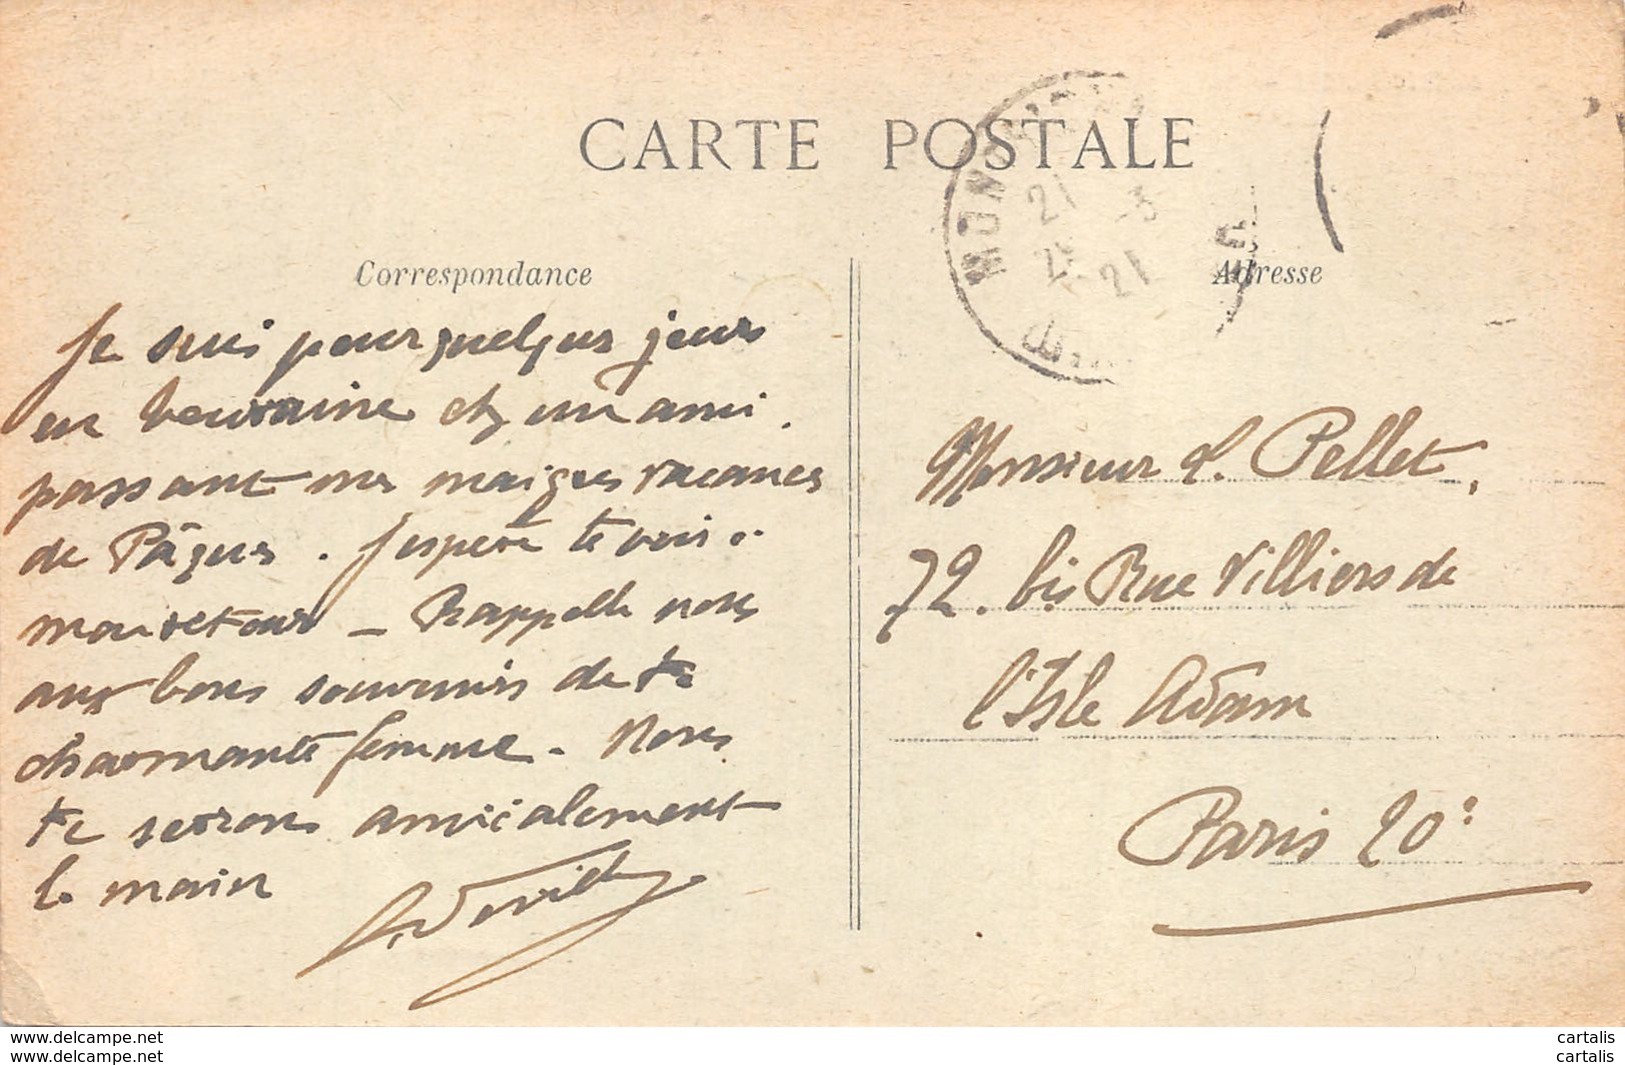 CARTE POSTALE
Correspondance
Je suis pour quelques jours
en touraine chez un ami.
passant mes maigres vacances
de Pâques. J'espère te voir à
mon retour – Rappelle nous
aux bons souvenirs de ta
charmante femme. Nous
te serrons amicalement
la main
21 -3
21
Adresse
Monsieur L. Pellet,
72. bis Rue Villiers de
l'Isle Adam
Paris 20e
delcampe.net
delcampe.net
cartalis
cartalis